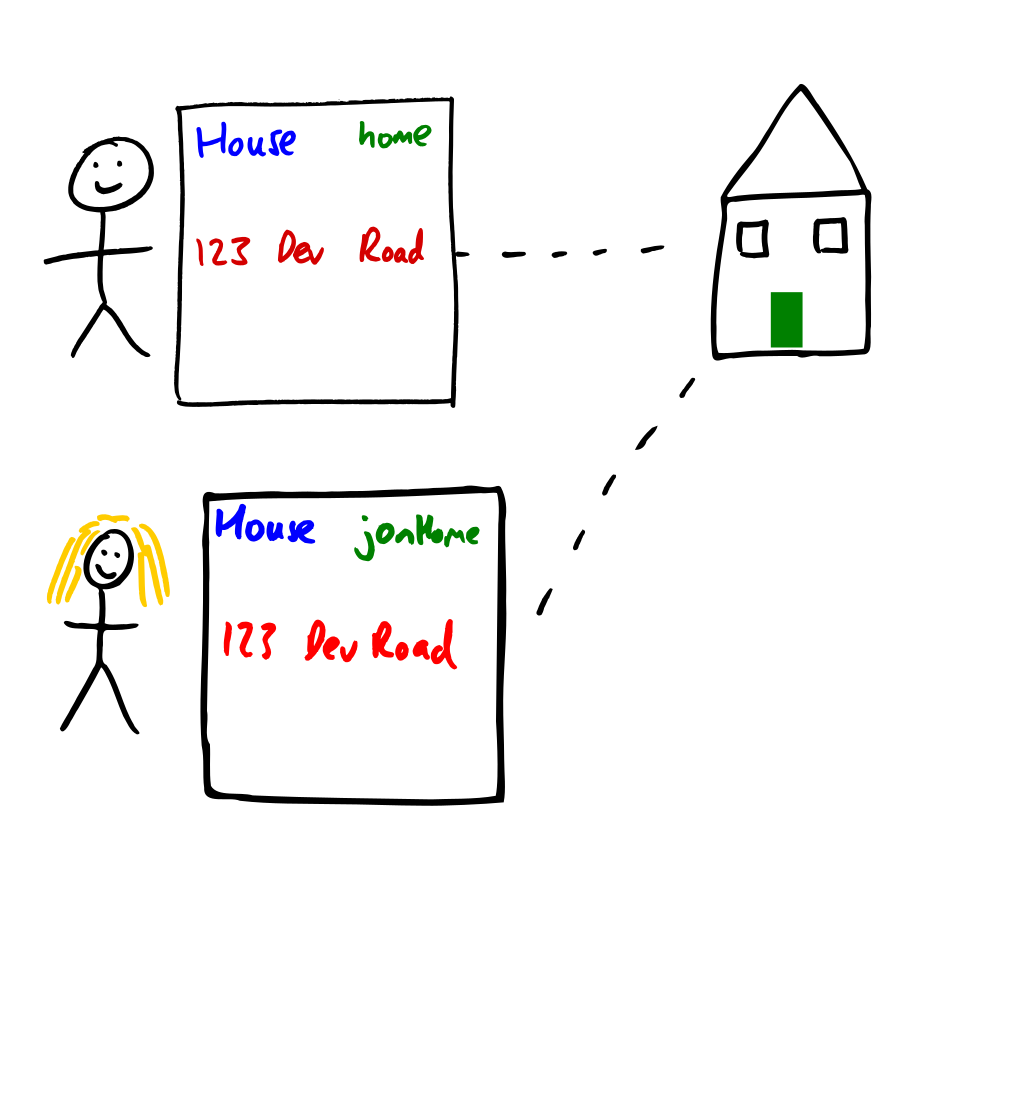 House home
123 Dev Road
House jonHome
123 Dev Road